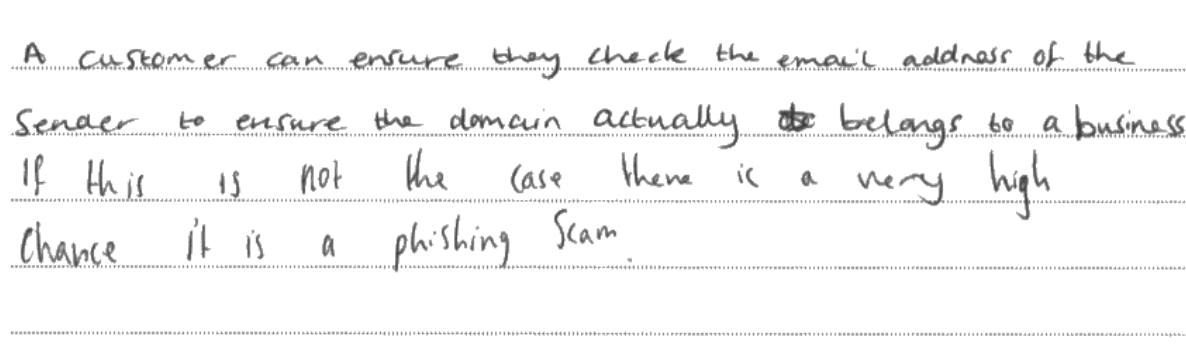 A customer can ensure they check the email address of the
sender to ensure the domain actually belongs to a business
If this is not the case there is a very high
Chance it is a phishing Scam.